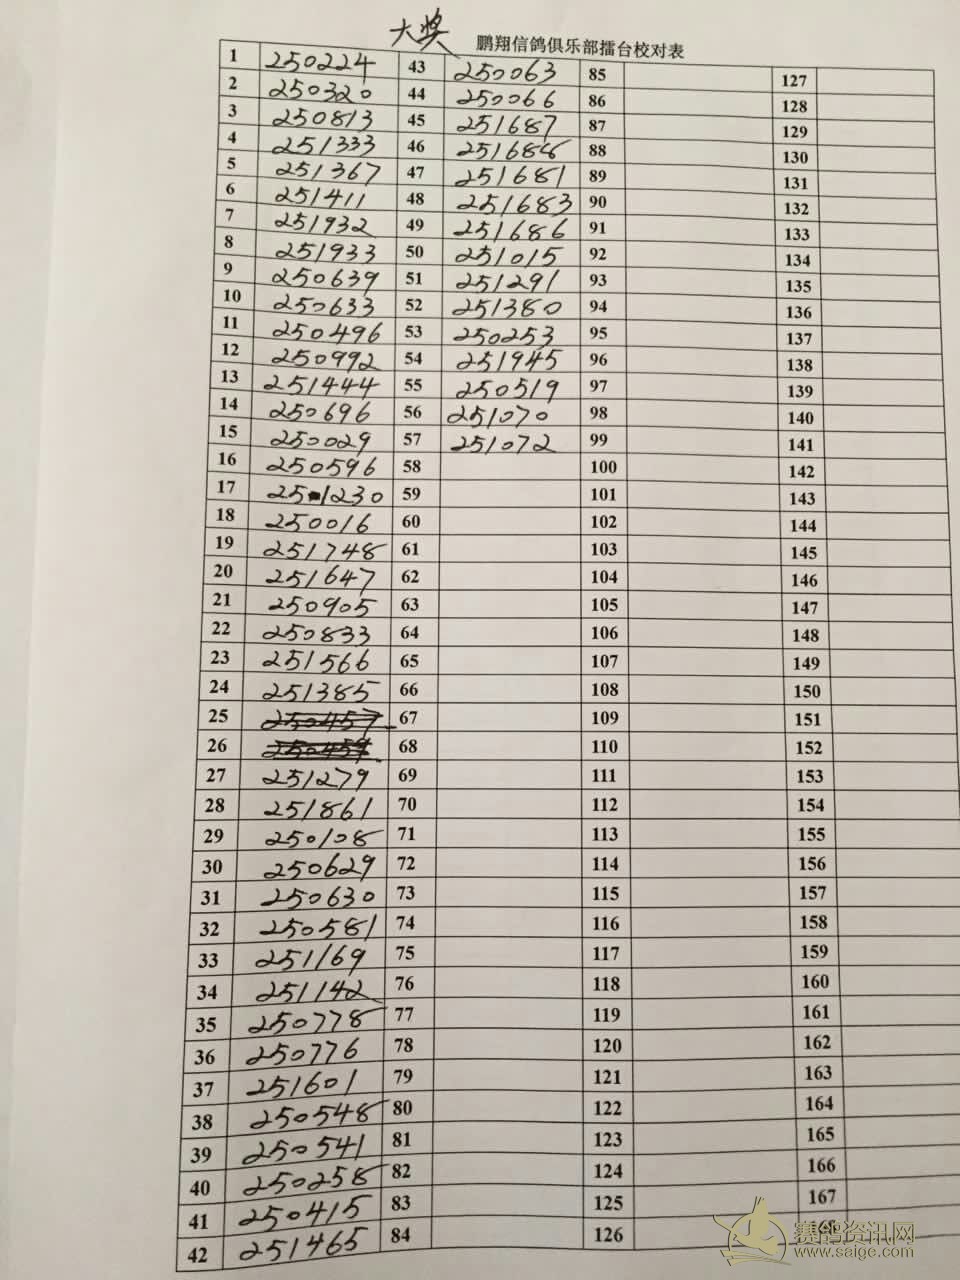 大奖 鹏翔信鸽俱乐部擂台校对表
1 250224 43 250063 85 127
2 250320 44 250066 86 128
3 250813 45 251687 87 129
4 251333 46 88 130
5 251367 47 251681 89 131
6 251411 48 251683 90 132
7 251932 49 251686 91 133
8 251933 50 251015 92 134
9 250639 51 251291 93 135
10 250633 52 251380 94 136
11 250496 53 250253 95 137
12 250992 54 251945 96 138
13 251444 55 250519 97 139
14 250696 56 251070 98 140
15 250029 57 251072 99 141
16 250596 58 100 142
17 251230 59 101 143
18 250016 60 102 144
19 251748 61 103 145
20 251647 62 104 146
21 250905 63 105 147
22 250833 64 106 148
23 251566 65 107 149
24 251385 66 108 150
25 250457 67 109 151
26 250459 68 110 152
27 251279 69 111 153
28 251861 70 112 154
29 250108 71 113 155
30 250629 72 114 156
31 250630 73 115 157
32 250581 74 116 158
33 251169 75 117 159
34 251142 76 118 160
35 250778 77 119 161
36 250776 78 120 162
37 251601 79 121 163
38 250548 80 122 164
39 250541 81 123 165
40 250258 82 124 166
41 250415 83 125 167
42 251465 84 126
赛鸽资讯网
www.saige.com